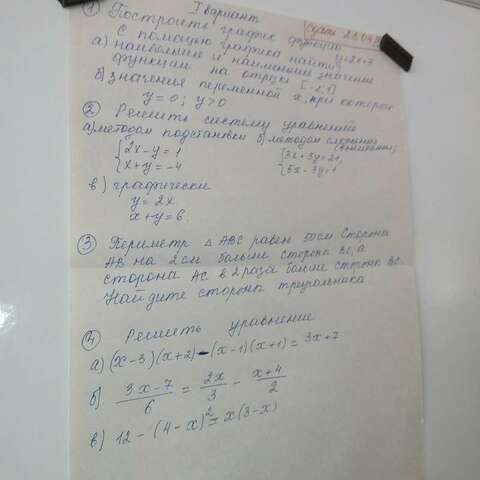 I вариант
Сдать 23.04
① Построить график функции y=2x+3
С помощью графика найти
а) наибольшее и наименьшее значение
функции на отрезке [-2;1]
б) значения переменной x, при которой
y=0; y>0
② Решить систему уравнений
а) методом подстановки б) методом сложения
(вычитания)
{2x-y=1 {3x+3y=21,
{x+y=-4 {5x-3y=1
в) графически
y=2x
x+y=6.
③ Периметр △ABC равен 50см Сторона
AB на 2см больше стороны BC, а
сторона AC в 2 раза больше стороны BC
Найдите стороны треугольника
④ Решить уравнение
а) (x-3)(x+2)-(x-1)(x+1)=3x+7
б) (3x-7)/6 = 2x/3 - (x+4)/2
в) 12-(4-x)²=x(3-x)